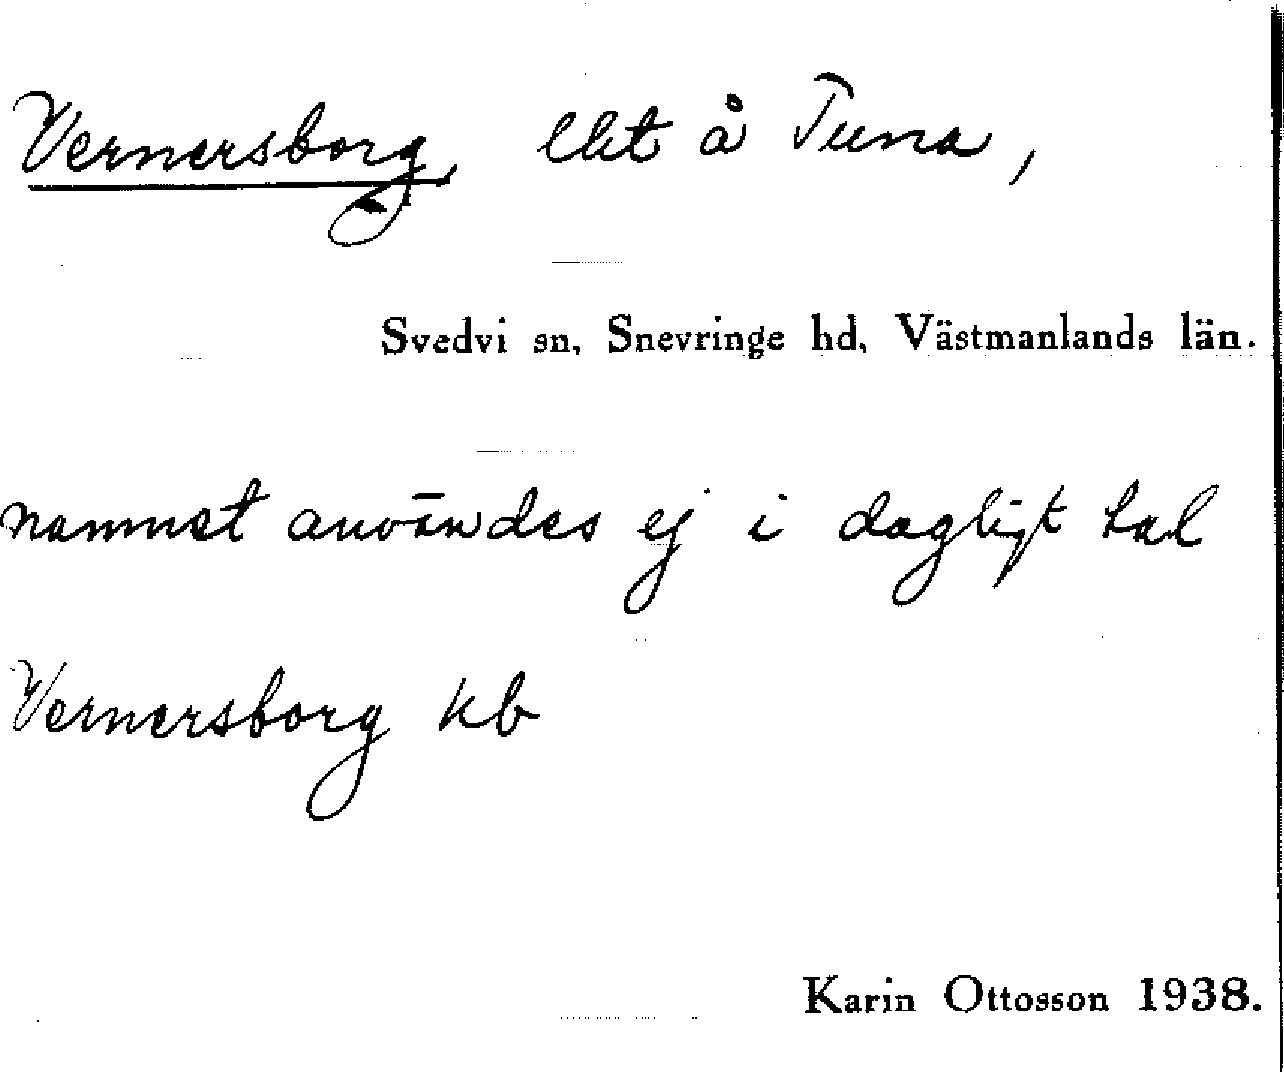 Vernersborg, lht å Tuna,
Svedvi sn, Snevringe hd, Västmanlands län.
namnet användes ej i dagligt tal
Vernersborg kb
Karin Ottosson 1938.